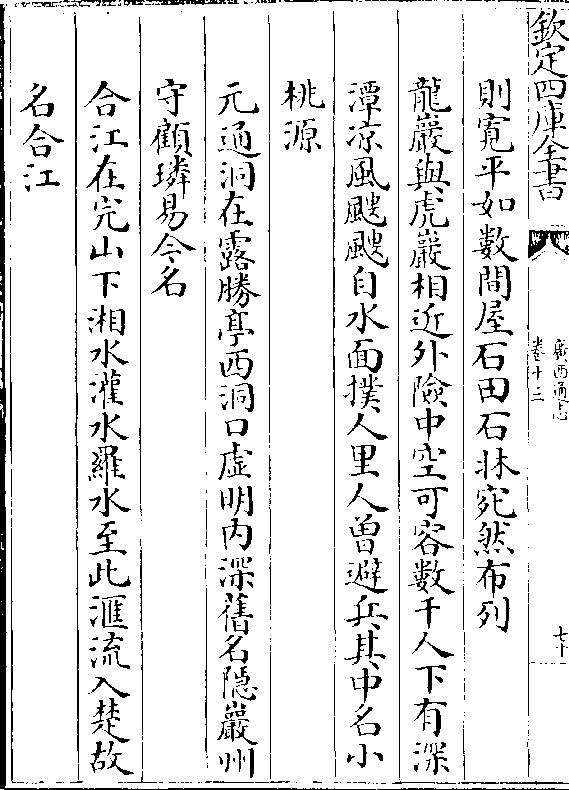 欽定四庫全書
廣西通志
卷十三
七十
則寛平如數間屋石田石牀宛然布列
龍巖與虎巖相近外險中空可容數千人下有深
潭凉風颼颼自水面撲人里人曽避兵其中名小
桃源
元通洞在露勝亭西洞口虚明内深舊名隱巖州
守顧璘易今名
合江在完山下湘水灌水羅水至此滙流入楚故
名合江